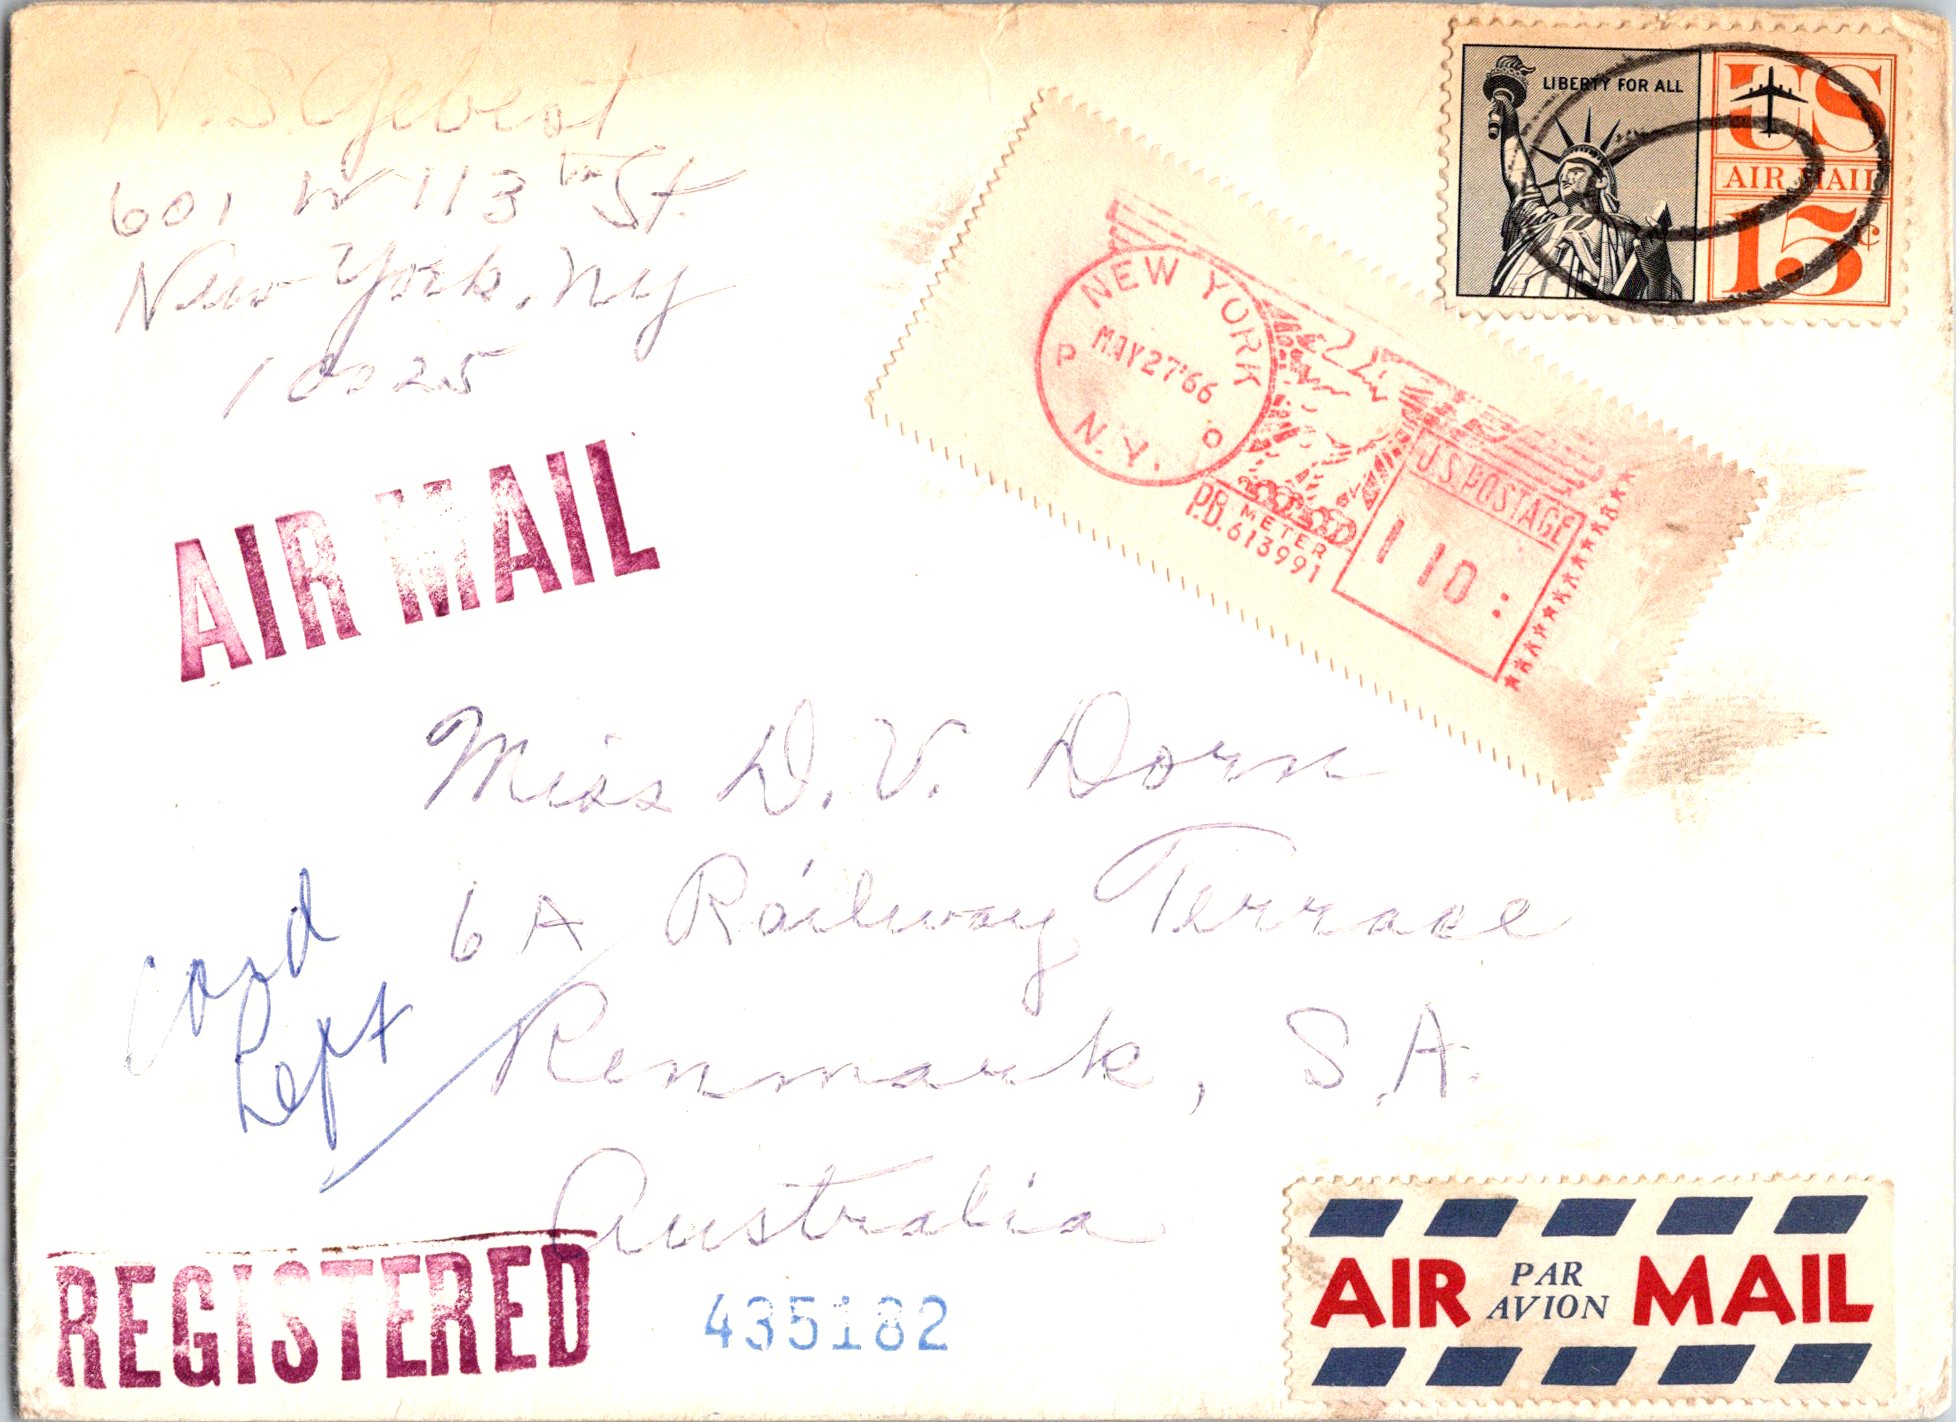 N. S. Gebert
601 W 113th St.
New York, NY
10025
LIBERTY FOR ALL
US
AIR MAIL
15¢
NEW YORK
MAY 27'66
P O
N.Y.
U.S. POSTAGE
1 10
PB METER
P.B. 613991
AIR MAIL
Miss D. V. Dorn
6A Railway Terrace
Renmark, S.A.
Australia
REGISTERED
435182
AIR PAR AVION MAIL